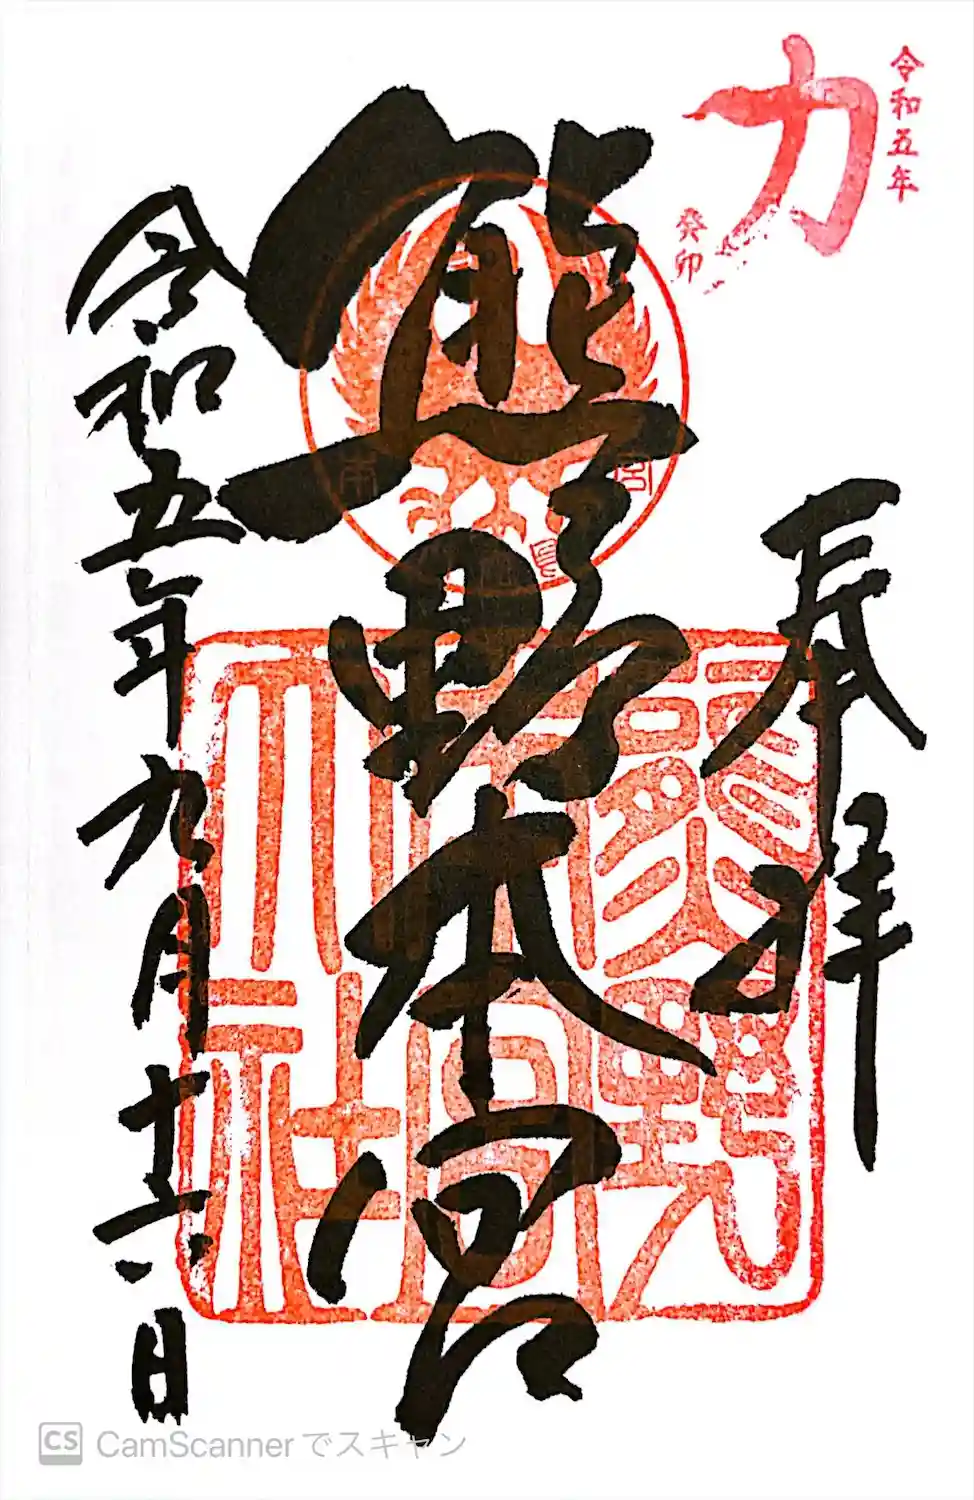 令和五年
力
癸卯
奉拝
熊野本宮
令和五年九月十六日
CS CamScannerでスキャン